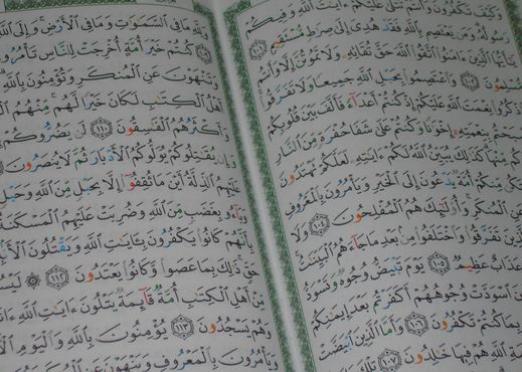 وَكَيْفَ تَكْفُرُونَ وَأَنتُمْ تُتْلَىٰ عَلَيْكُمْ ءَايَٰتُ ٱللَّهِ وَفِيكُمْ
رَسُولُهُۥ وَمَن يَعْتَصِم بِٱللَّهِ فَقَدْ هُدِىَ إِلَىٰ صِرَٰطٍ مُّسْتَقِيمٍ ١٠١
يَٰٓأَيُّهَا ٱلَّذِينَ ءَامَنُوا۟ ٱتَّقُوا۟ ٱللَّهَ حَقَّ تُقَاتِهِۦ وَلَا تَمُوتُنَّ إِلَّا وَأَنتُم
مُّسْلِمُونَ ١٠٢ وَٱعْتَصِمُوا۟ بِحَبْلِ ٱللَّهِ جَمِيعًا وَلَا تَفَرَّقُوا۟
نِعْمَتَ ٱللَّهِ عَلَيْكُمْ إِذْ كُنتُمْ أَعْدَآءً فَأَلَّفَ بَيْنَ قُلُوبِكُمْ
بِنِعْمَتِهِۦٓ إِخْوَٰنًا وَكُنتُمْ عَلَىٰ شَفَا حُفْرَةٍ مِّنَ ٱلنَّارِ
مِّنْهَا كَذَٰلِكَ يُبَيِّنُ ٱللَّهُ لَكُمْ ءَايَٰتِهِۦ لَعَلَّكُمْ تَهْتَدُونَ
مِّنكُمْ أُمَّةٌ يَدْعُونَ إِلَى ٱلْخَيْرِ وَيَأْمُرُونَ بِٱلْمَعْرُوفِ
عَنِ ٱلْمُنكَرِ وَأُو۟لَٰٓئِكَ هُمُ ٱلْمُفْلِحُونَ ١٠٤ وَلَا
كَٱلَّذِينَ تَفَرَّقُوا۟ وَٱخْتَلَفُوا۟ مِنۢ بَعْدِ مَا جَآءَهُمُ ٱلْبَيِّنَٰتُ
عَذَابٌ عَظِيمٌ ١٠٥ يَوْمَ تَبْيَضُّ وُجُوهٌ وَتَسْوَدُّ
ٱسْوَدَّتْ وُجُوهُهُمْ أَكَفَرْتُم بَعْدَ إِيمَٰنِكُمْ
بِمَا كُنتُمْ تَكْفُرُونَ ١٠٦ وَأَمَّا ٱلَّذِينَ ٱبْيَضَّتْ
ٱللَّهِ هُمْ فِيهَا خَٰلِدُونَ ١٠٧ تِلْكَ
وَلِلَّهِ مَا فِى ٱلسَّمَٰوَٰتِ وَمَا فِى ٱلْأَرْضِ وَإِلَى
كُنتُمْ خَيْرَ أُمَّةٍ أُخْرِجَتْ لِلنَّاسِ تَأْمُرُونَ
وَتَنْهَوْنَ عَنِ ٱلْمُنكَرِ وَتُؤْمِنُونَ بِٱللَّهِ
أَهْلُ ٱلْكِتَٰبِ لَكَانَ خَيْرًا لَّهُم مِّنْهُمُ
وَأَكْثَرُهُمُ ٱلْفَٰسِقُونَ ١١٠ لَن يَضُرُّوكُمْ
وَإِن يُقَٰتِلُوكُمْ يُوَلُّوكُمُ ٱلْأَدْبَارَ ثُمَّ لَا يُنصَرُونَ
عَلَيْهِمُ ٱلذِّلَّةُ أَيْنَ مَا ثُقِفُوٓا۟ إِلَّا بِحَبْلٍ مِّنَ ٱللَّهِ وَحَبْلٍ
وَبَآءُو بِغَضَبٍ مِّنَ ٱللَّهِ وَضُرِبَتْ عَلَيْهِمُ ٱلْمَسْكَنَةُ
بِأَنَّهُمْ كَانُوا۟ يَكْفُرُونَ بِـَٔايَٰتِ ٱللَّهِ وَيَقْتُلُونَ
حَقٍّ ذَٰلِكَ بِمَا عَصَوا۟ وَّكَانُوا۟ يَعْتَدُونَ ١١٢ لَيْسُوا۟
مِّنْ أَهْلِ ٱلْكِتَٰبِ أُمَّةٌ قَآئِمَةٌ يَتْلُونَ ءَايَٰتِ ٱللَّهِ
وَهُمْ يَسْجُدُونَ ١١٣ يُؤْمِنُونَ بِٱللَّهِ وَٱلْيَوْمِ
وَيَأْمُرُونَ بِٱلْمَعْرُوفِ وَيَنْهَوْنَ عَنِ